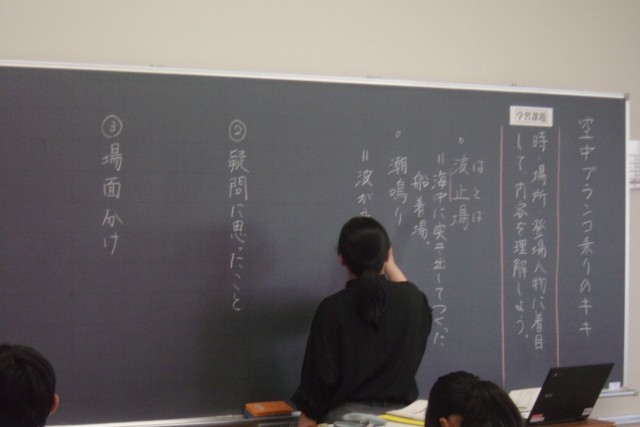 空中ブランコ乗りのキキ
学習課題
時・場所・登場人物に着目
して、内容を理解しよう。
はとば
。波止場
=海中に突き出してつくった
船着場。
。潮鳴り
=波が
②疑問に思ったこと
③場面分け